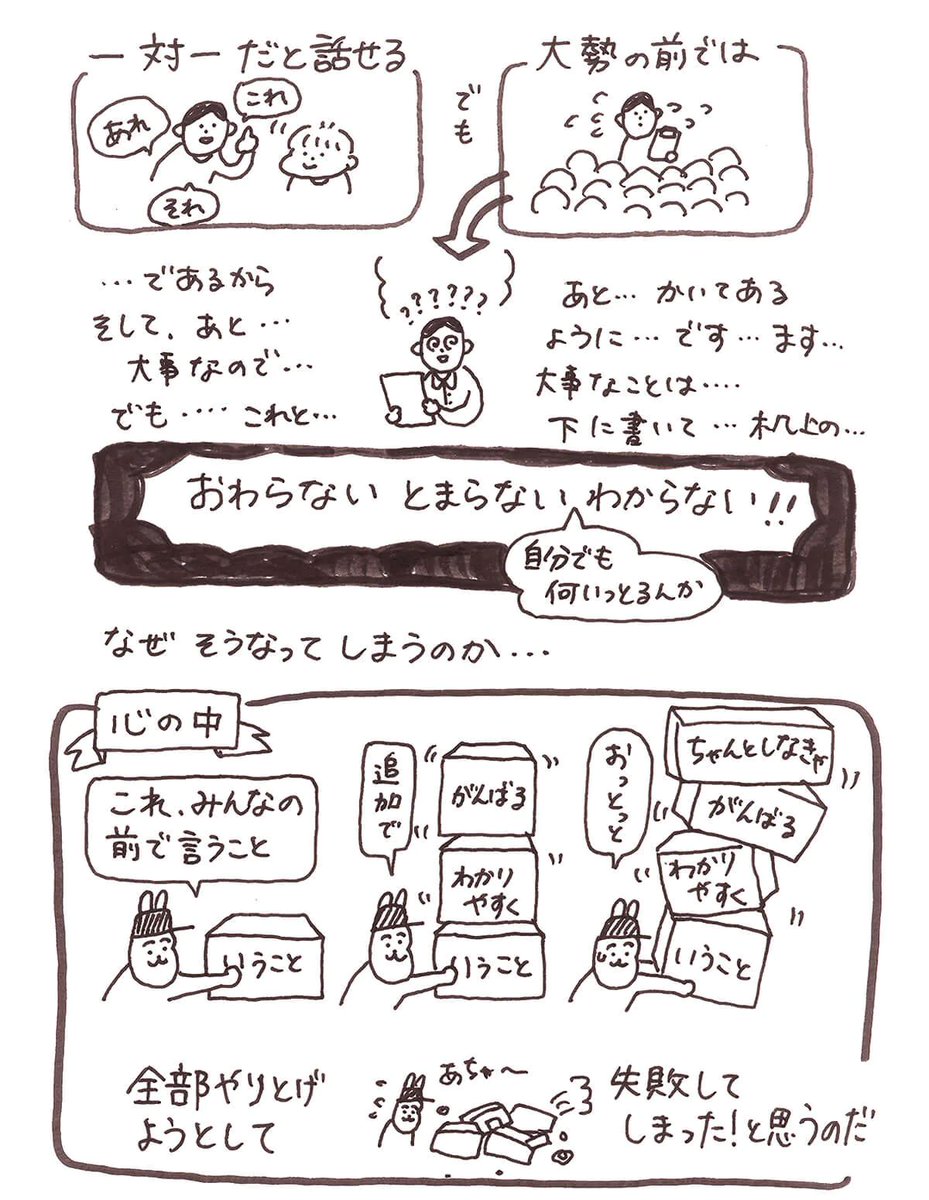 一対一だと話せる
これ
あれ
それ
でも
大勢の前では
??????
…であるから
そして、あと…
大事なので…
でも…… これと…
あと… かいてある
ように…です…ます…
大事なことは……
下に書いて…机上の…
おわらない とまらない わからない!!
自分でも
何いっとるんか
なぜ そうなって しまうのか...
心の中
これ、みんなの
前で言うこと
いうこと
追加で
がんばる
わかり
やすく
いうこと
おっとっと
ちゃんとしなきゃ
がんばる
わかり
やすく
いうこと
全部やりとげ
ようとして
あちゃ〜
失敗して
しまった!と思うのだ